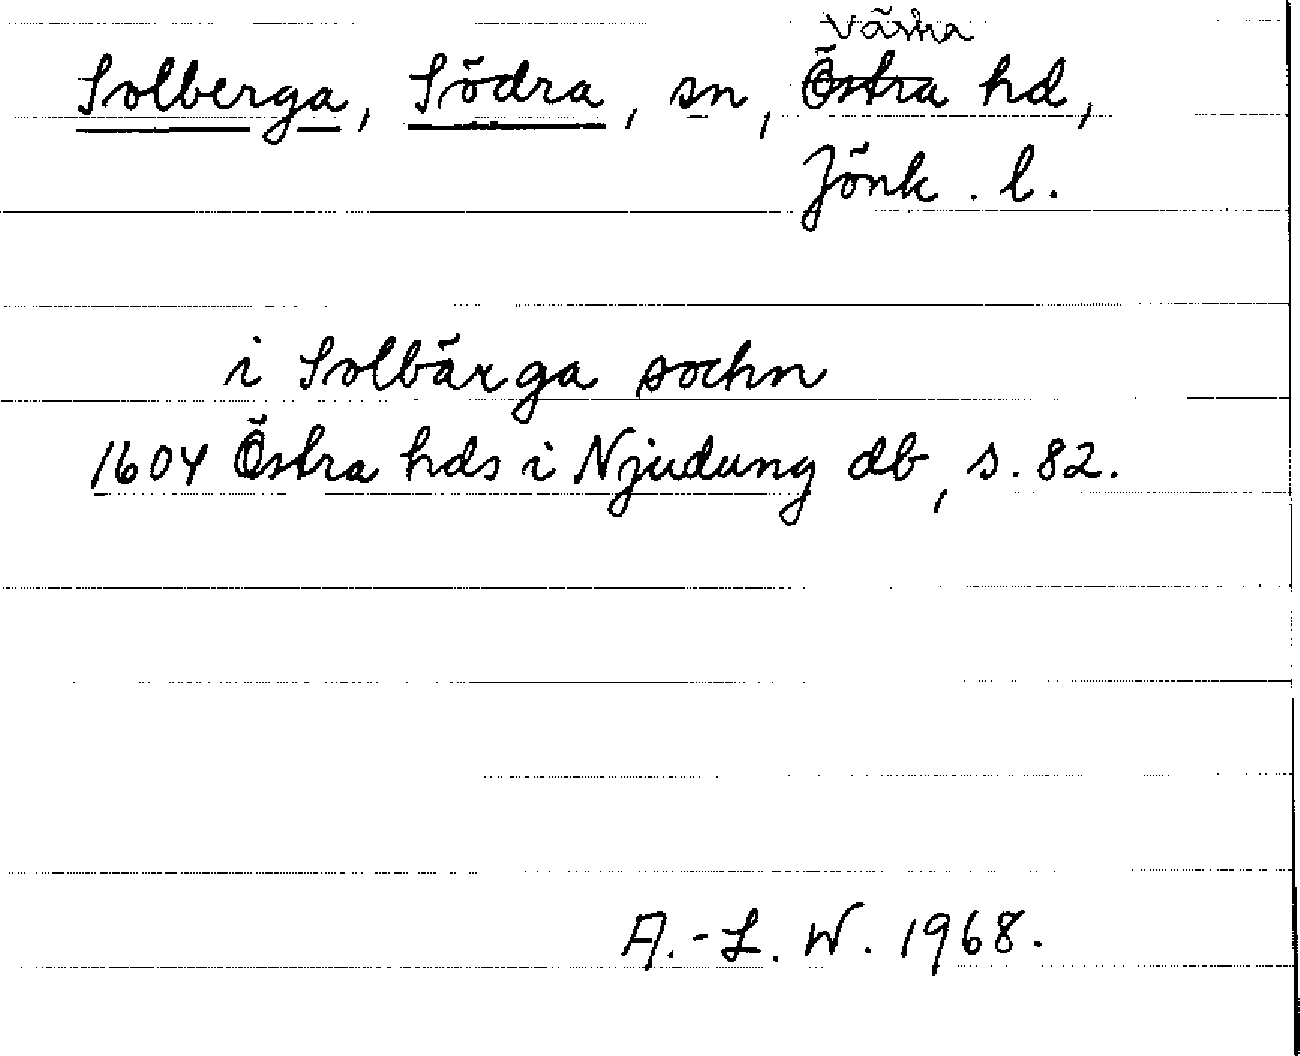 Västra
Solberga, Södra, sn, Östra hd,
Jönk. l.
i Solbärga sochn
1604 Östra hds i Njudung db, s. 82.
A.-L. W. 1968.